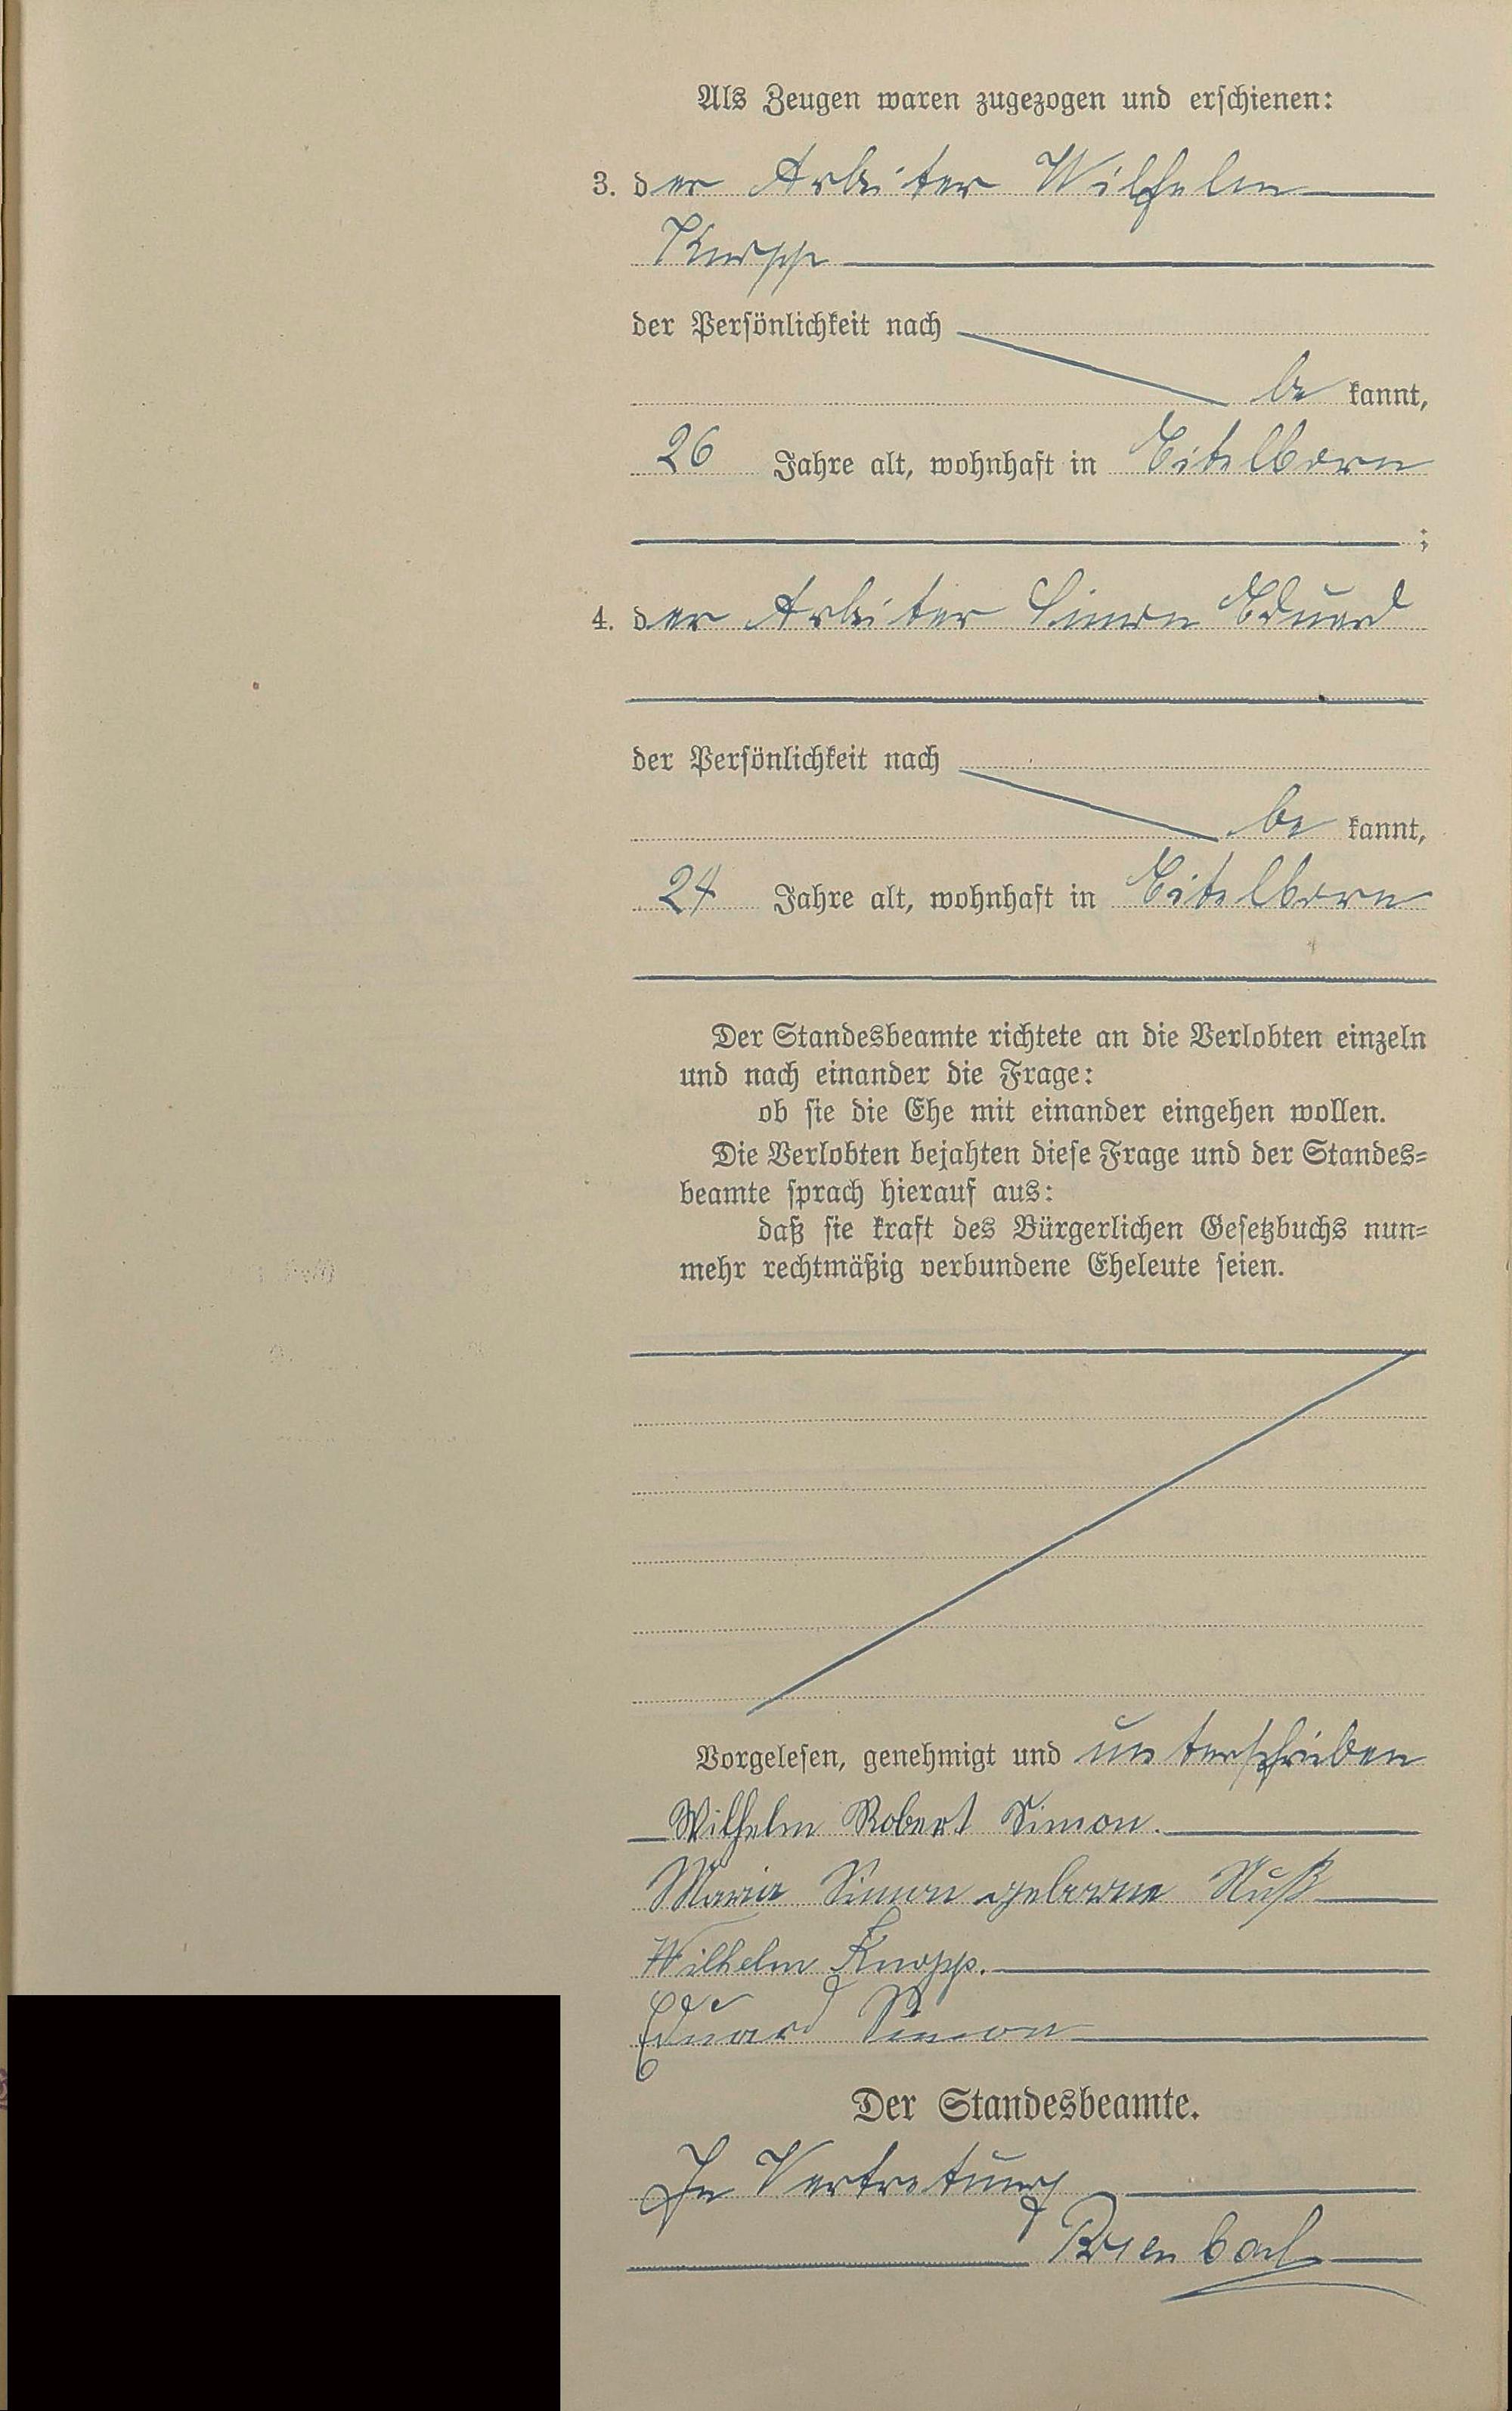 Als Zeugen waren zugezogen und erschienen:
3. der Arbeiter Wilhelm
Knopp
der Persönlichkeit nach
be kannt,
26 Jahre alt, wohnhaft in Eitelborn
;
4. der Arbeiter Simon Eduard
der Persönlichkeit nach
be kannt,
24 Jahre alt, wohnhaft in Eitelborn
Der Standesbeamte richtete an die Verlobten einzeln
und nach einander die Frage:
ob sie die Ehe mit einander eingehen wollen.
Die Verlobten bejahten diese Frage und der Standes-
beamte sprach hierauf aus:
daß sie kraft des Bürgerlichen Gesetzbuchs nun-
mehr rechtmäßig verbundene Eheleute seien.
Vorgelesen, genehmigt und unterschrieben
Wilhelm Robert Simon.
Maria Simon geborne Nuß
Wilhelm Knopp.
Eduard Simon
Der Standesbeamte.
In Vertretung